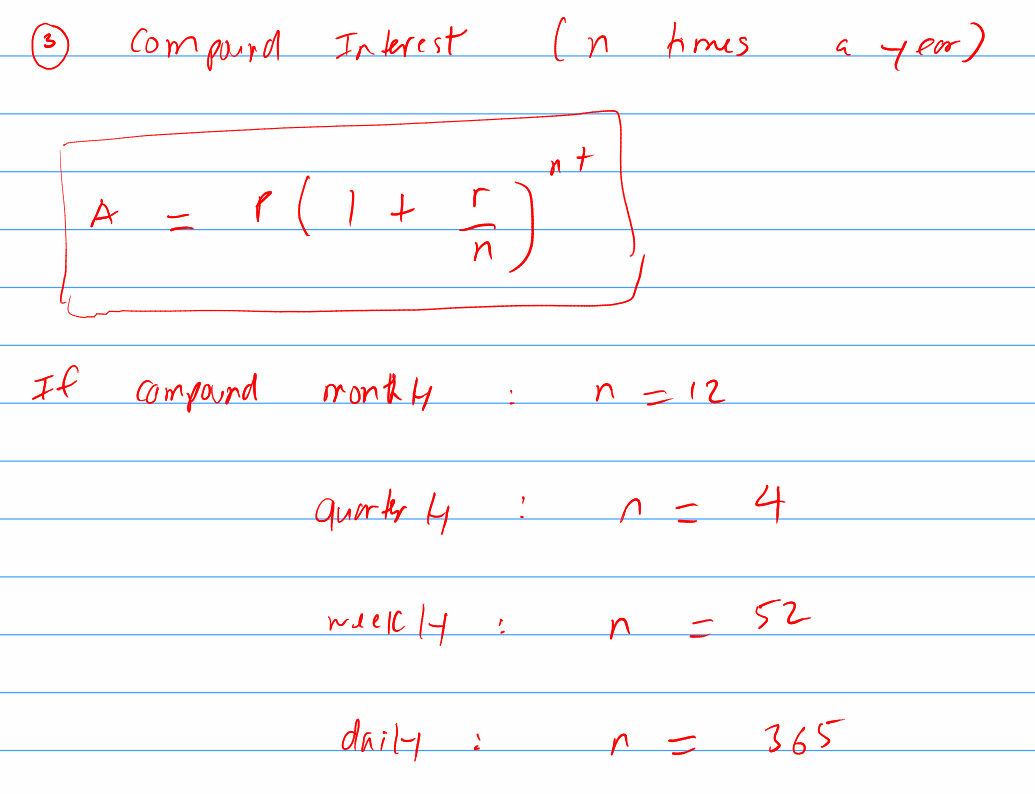 ③ Compound Interest (n times a year)
A = P(1 + r/n)^nt
If compound monthly : n = 12
quarterly : n = 4
weekly : n = 52
daily : n = 365